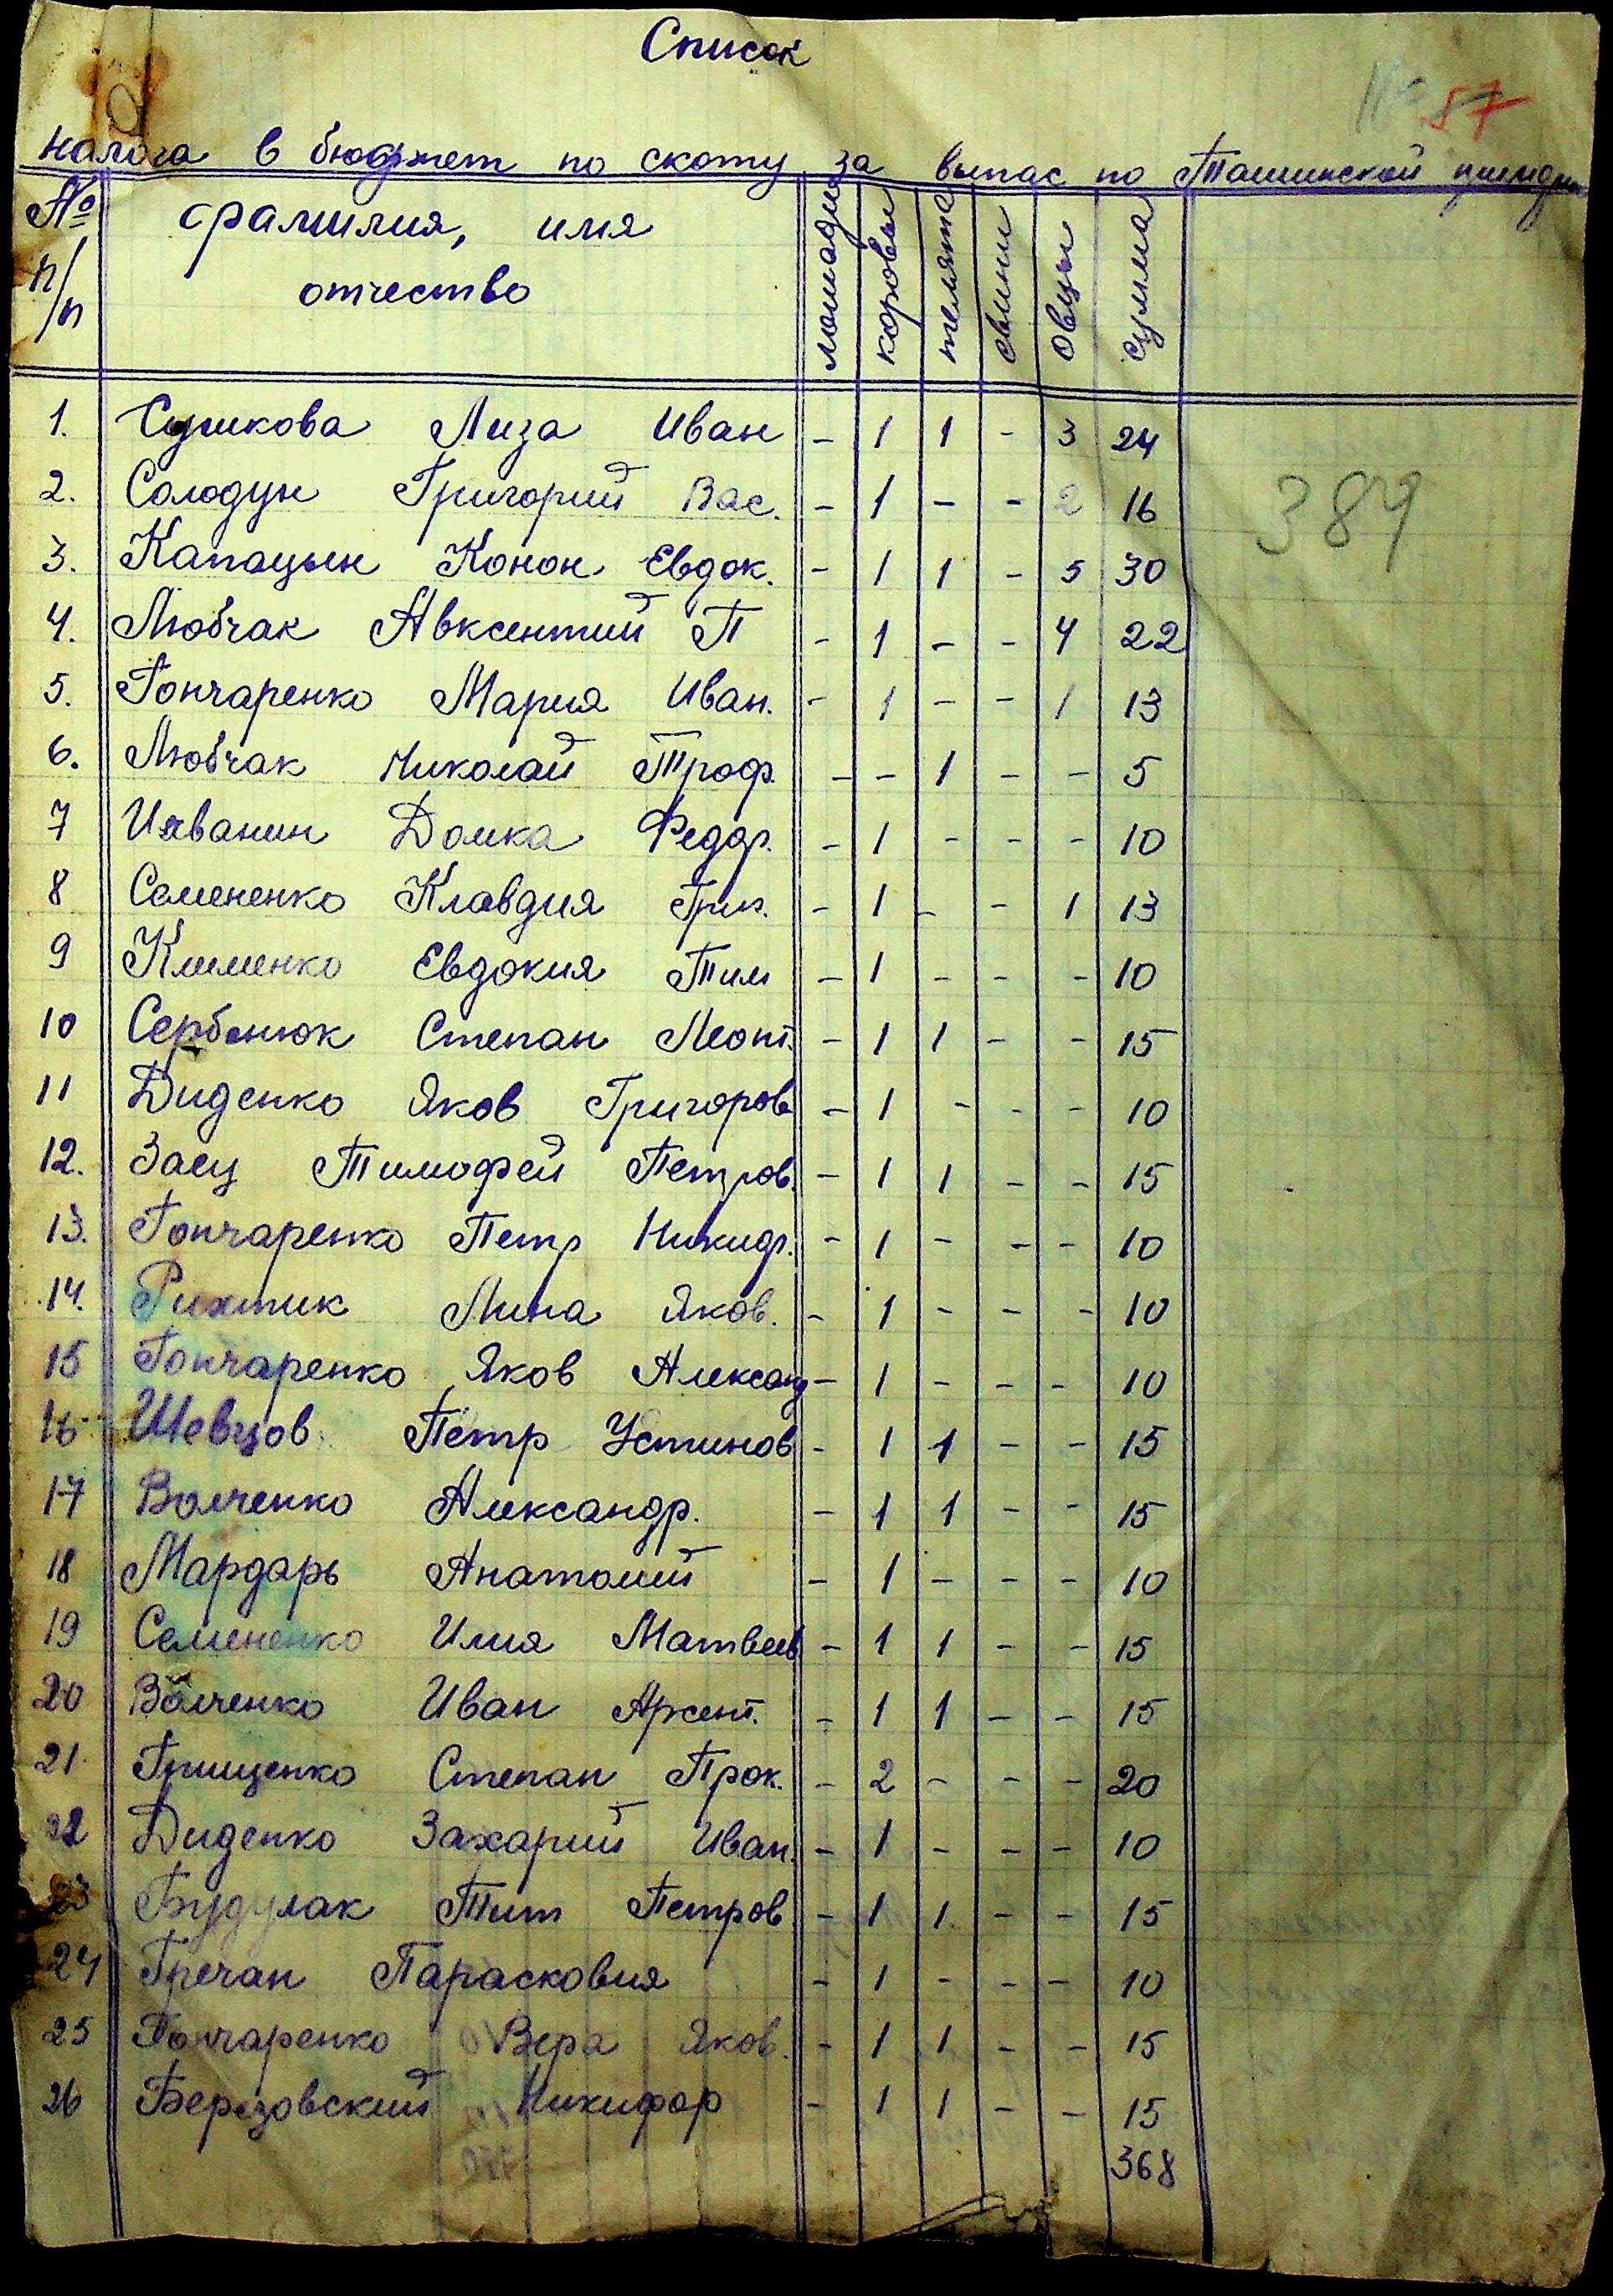 Список
№ 57
налога в бюджет по скоту за выпас по Ташинской
№ п/п фамилия, имя отчество лошади коровы телята свини овцы сумма
1. Сушкова Лиза Иван - 1 1 - 3 24
2. Солодун Григорий Вас. - 1 - - 2 16
384
3. Капацын Конон Евдок. - 1 1 - 5 30
4. Любчак Авксентий П - 1 - - 4 22
5. Гончаренко Мария Иван. - 1 - - 1 13
6. Любчак Николай Троф. - - 1 - - 5
7 Ихванин Домка Федор. - 1 - - - 10
8 Семененко Клавдия Григ. - 1 - - 1 13
9 Клименко Евдокия Тим - 1 - - - 10
10 Сербенюк Степан Леонт. - 1 1 - - 15
11 Диденко Яков Григоров - 1 - - - 10
12. Заец Тимофей Петров. - 1 1 - - 15
13. Гончаренко Петр Никиф. - 1 - - - 10
14. Рихтик Лина Яков. - 1 - - - 10
15 Гончаренко Яков Александ - 1 - - - 10
16 Шевцов Петр Устинов - 1 1 - - 15
17 Волченко Александр. - 1 1 - - 15
18 Мардарь Анатолий - 1 - - - 10
19 Семененко Илия Матвеев - 1 1 - - 15
20 Волченко Иван Арсент. - 1 1 - - 15
21 Грищенко Степан Прок. - 2 - - - 20
22 Диденко Захарий Иван. - 1 - - - 10
23 Будулак Тит Петров - 1 1 - - 15
24 Гречан Парасковия - 1 - - - 10
25 Гончаренко Вера Яков. - 1 1 - - 15
26 Березовский Никифор - 1 1 - - 15
368